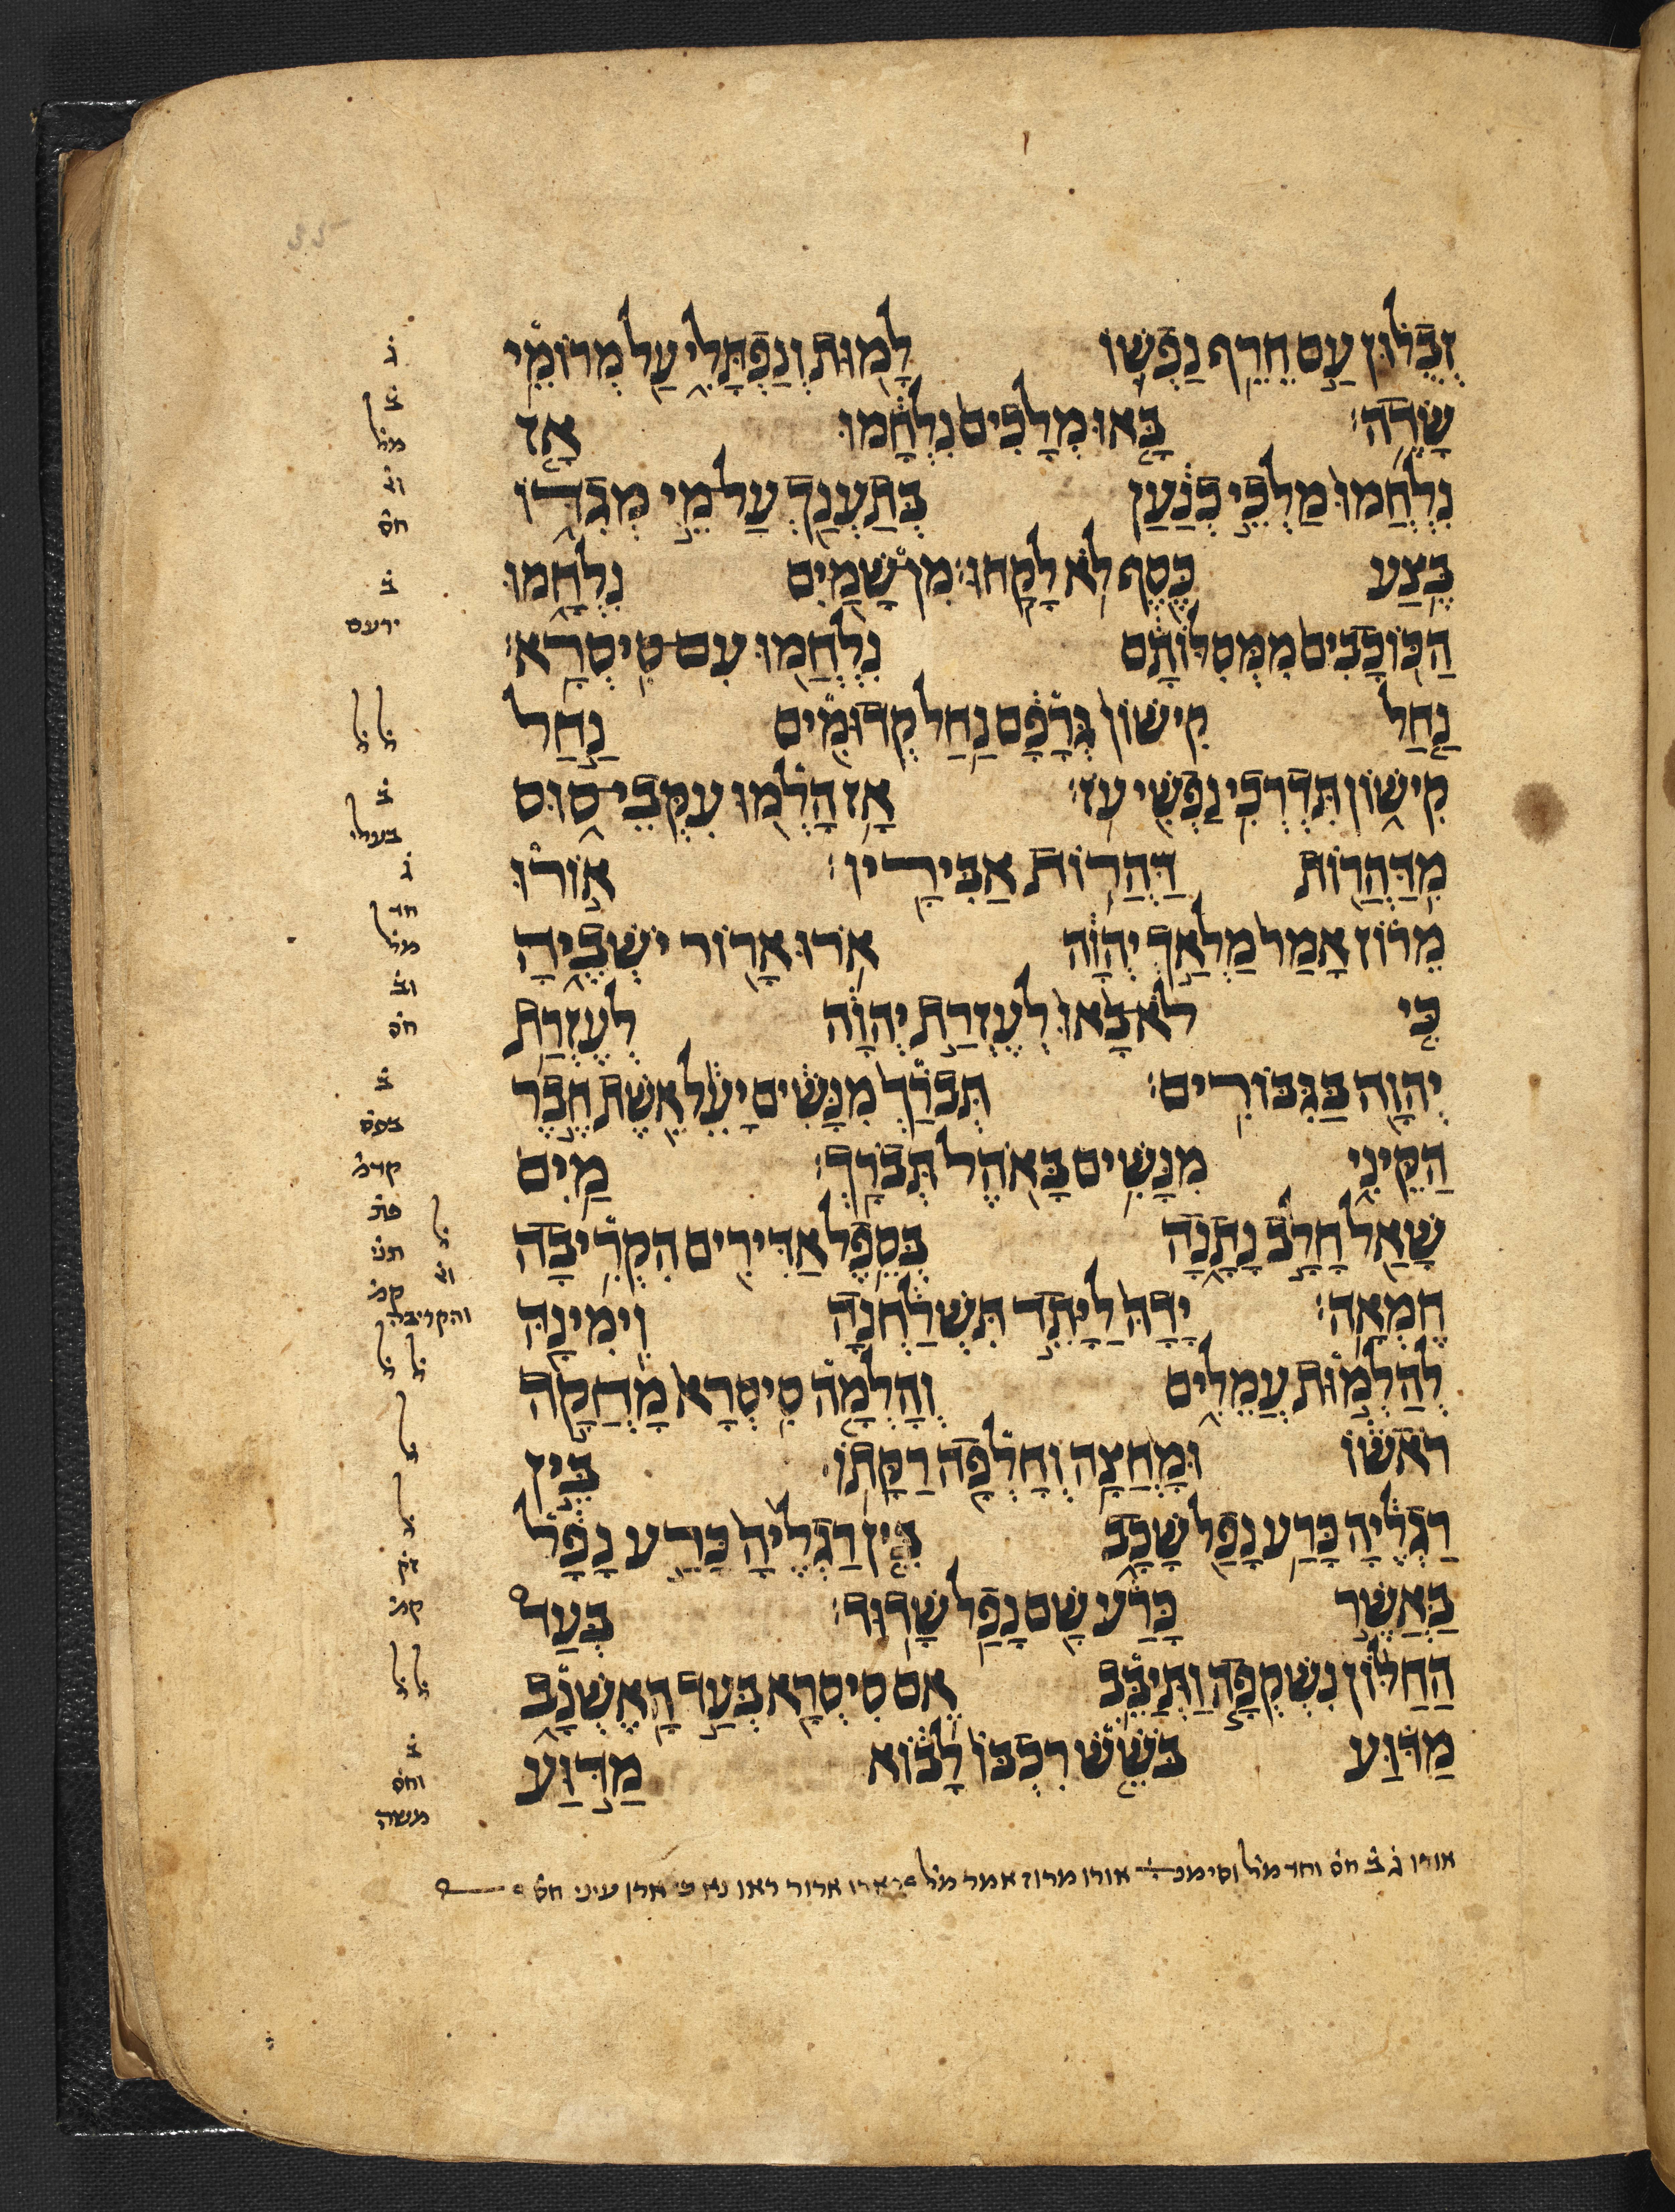 זְבֻלוּן עַם חֵרֵף נַפְשׁוֹ לָמוּת וְנַפְתָּלִי עַל מְרוֹמֵי
שָׂדֶה׃ בָּאוּ מְלָכִים נִלְחָמוּ אָז
נִלְחֲמוּ מַלְכֵי כְנַעַן בְּתַעְנַךְ עַל מֵי מְגִדּוֹ
בֶּצַע כֶּסֶף לֹא לָקָחוּ׃ מִן שָׁמַיִם נִלְחָמוּ
הַכּוֹכָבִים מִמְּסִלּוֹתָם נִלְחֲמוּ עִם סִיסְרָא׃
נַחַל קִישׁוֹן גְּרָפָם נַחַל קְדוּמִים נַחַל
קִישׁוֹן תִּדְרְכִי נַפְשִׁי עֹז׃ אָז הָלְמוּ עִקְּבֵי סוּס
מִדַּהֲרוֹת דַּהֲרוֹת אַבִּירָיו׃ אוֹרוּ
מֵרוֹז אָמַר מַלְאַךְ יְהוָה אֹרוּ אָרוֹר יֹשְׁבֶיהָ
כִּי לֹא בָאוּ לְעֶזְרַת יְהוָה לְעֶזְרַת
יְהוָה בַּגִּבּוֹרִים׃ תְּבֹרַךְ מִנָּשִׁים יָעֵל אֵשֶׁת חֶבֶר
הַקֵּינִי מִנָּשִׁים בָּאֹהֶל תְּבֹרָךְ׃ מַיִם
שָׁאַל חָלָב נָתָנָה בְּסֵפֶל אַדִּירִים הִקְרִיבָה
חֶמְאָה׃ יָדָהּ לַיָּתֵד תִּשְׁלַחְנָה וִימִינָהּ
לְהַלְמוּת עֲמֵלִים וְהָלְמָה סִיסְרָא מָחֲקָה
רֹאשׁוֹ וּמָחֲצָה וְחָלְפָה רַקָּתוֹ׃ בֵּין
רַגְלֶיהָ כָּרַע נָפַל שָׁכָב בֵּין רַגְלֶיהָ כָּרַע נָפָל
בַּאֲשֶׁר כָּרַע שָׁם נָפַל שָׁדוּד׃ בְּעַד
הַחַלּוֹן נִשְׁקְפָה וַתְּיַבֵּב אֵם סִיסְרָא בְּעַד הָאֶשְׁנָב
מַדּוּעַ בֹּשֵׁשׁ רִכְבּוֹ לָבוֹא מַדּוּעַ
ג
ב
מל
וג
חס
ב
ירעם
ל ל
ב
בעלי
ג
חד
מל
וב
חס
ב
קדמ
ל
והקריבה
ל ל
ל
ל
קמ
ל ל
ב
וחס
משה
אורו ג ב חס וחד מל וסימנ אורו מרוז אמר מל ארו ארור ראו נא כי ארו עיני חס